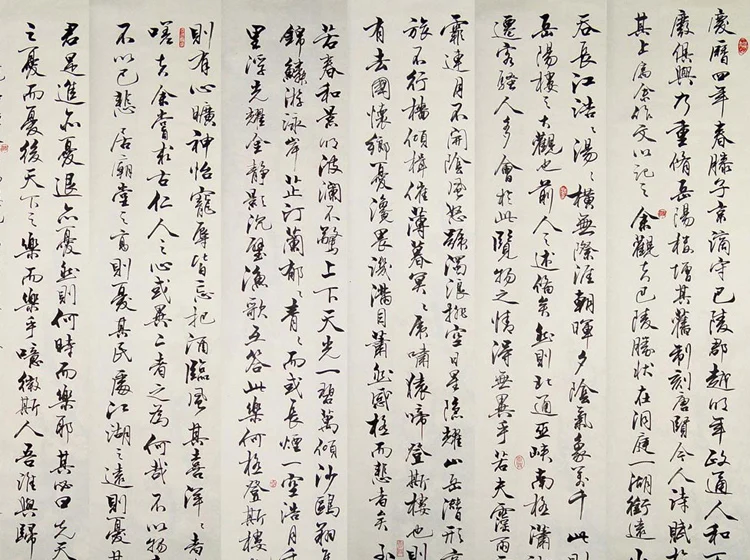 慶曆四年春滕子京謫守巴陵郡越明年政通人和
廢俱興乃重修岳陽樓增其舊制刻唐賢今人詩賦
其上屬余作文以記之余觀夫巴陵勝狀在洞庭一湖銜遠山
吞長江浩浩湯湯橫無際涯朝暉夕陰氣象萬千此則
岳陽樓之大觀也前人之述備矣然則北通巫峽南極瀟
遷客騷人多會於此覽物之情得無異乎若夫霪雨
霏連月不開陰風怒號濁浪排空日星隱耀山岳潛形商
旅不行檣傾楫摧薄暮冥冥虎嘯猿啼登斯樓也則
有去國懷鄉憂讒畏譏滿目蕭然感極而悲者矣至
若春和景明波瀾不驚上下天光一碧萬頃沙鷗翔
錦鱗游泳岸芷汀蘭郁郁青青而或長煙一空浩月千
里浮光耀金靜影沉璧漁歌互答此樂何極登斯樓
則有心曠神怡寵辱皆忘把酒臨風其喜洋洋者
嗟夫余嘗求古仁人之心或異二者之為何哉不以物
不以己悲居廟堂之高則憂其民處江湖之遠則憂其
君是進亦憂退亦憂然則何時而樂耶其必曰先天
之憂而憂後天下之樂而樂乎噫微斯人吾誰與歸